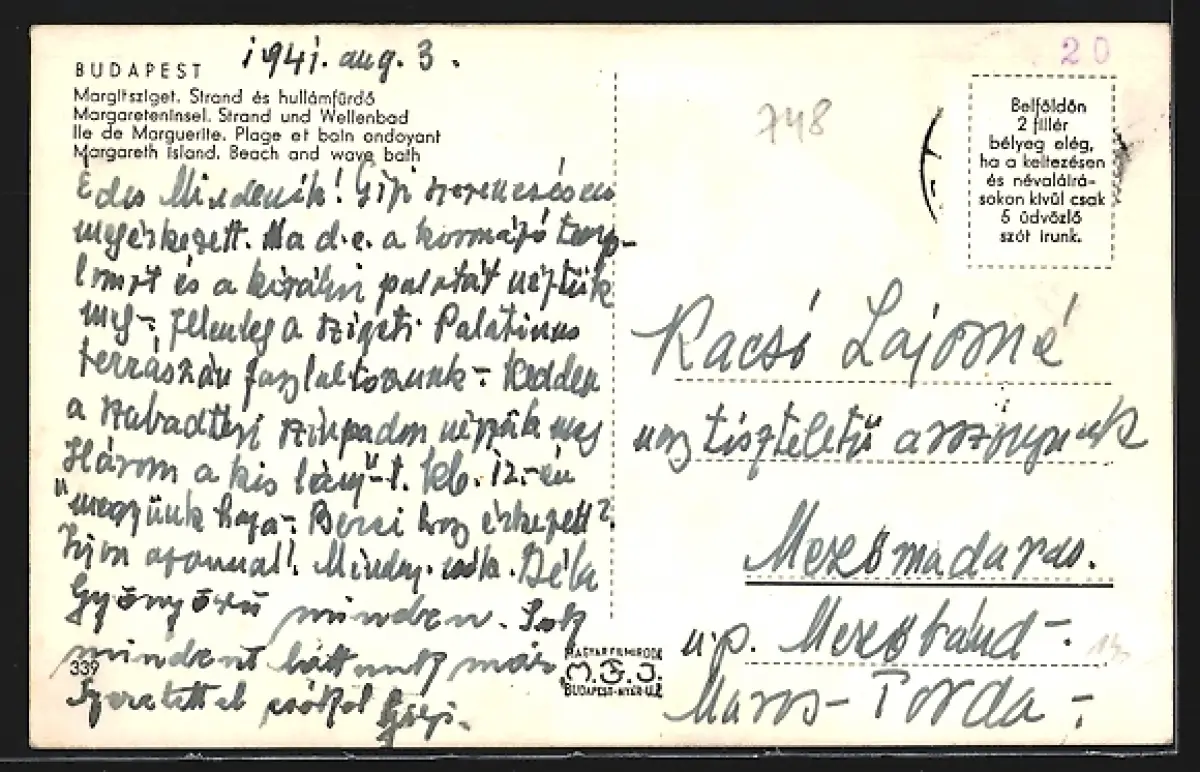 BUDAPEST
1941. aug. 3.
Margitsziget. Strand és hullámfürdő
Margareteninsel. Strand und Wellenbad
Ile de Marguerite. Plage et bain ondoyant
Margareth Island. Beach and wave bath
Édes Mindenik! Gizi szerencsésen
megérkezett. Ma d.e. a kormányzó temp-
lomot és a királyi palotát néztük
meg-; jelenleg a szigeti Palatinus
terraszán fagylaltozunk-. Kedden
a szabadtéri színpadon nézzük meg
"Három a kis lány"-t. kb. 12.-én
megyünk haza-. Berci hogy érkezett?
Írjon azonnal! Béla
Gyönyörű minden. Sok
mindent láttunk már
Szeretettel csókol Gizi.
339
MAGYAR FILMIRODA
M.F.I.
BUDAPEST
20
748
Belföldön
2 fillér
bélyeg elég,
ha a keltezésen
és névaláírá-
sokon kívül csak
5 üdvözlő
szót írunk.
Kacsó Lajosné
nagytiszteletű asszonynak
Mezőmadaras.
u.p. Mezőbánd-.
Maros-Torda-.